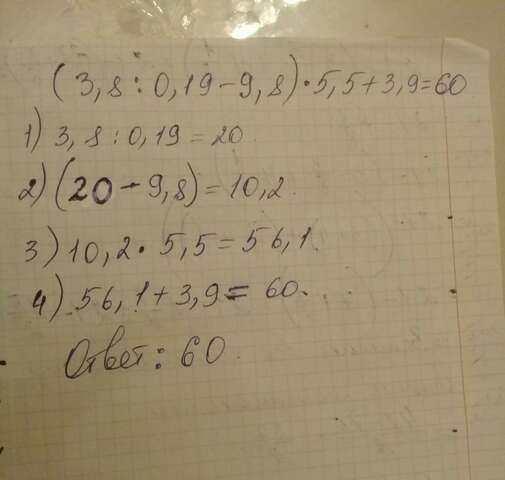 (3,8:0,19-9,8)·5,5+3,9=60
1) 3,8:0,19=20
2) (20-9,8)=10,2
3) 10,2·5,5=56,1.
4) 56,1+3,9=60.
Ответ: 60